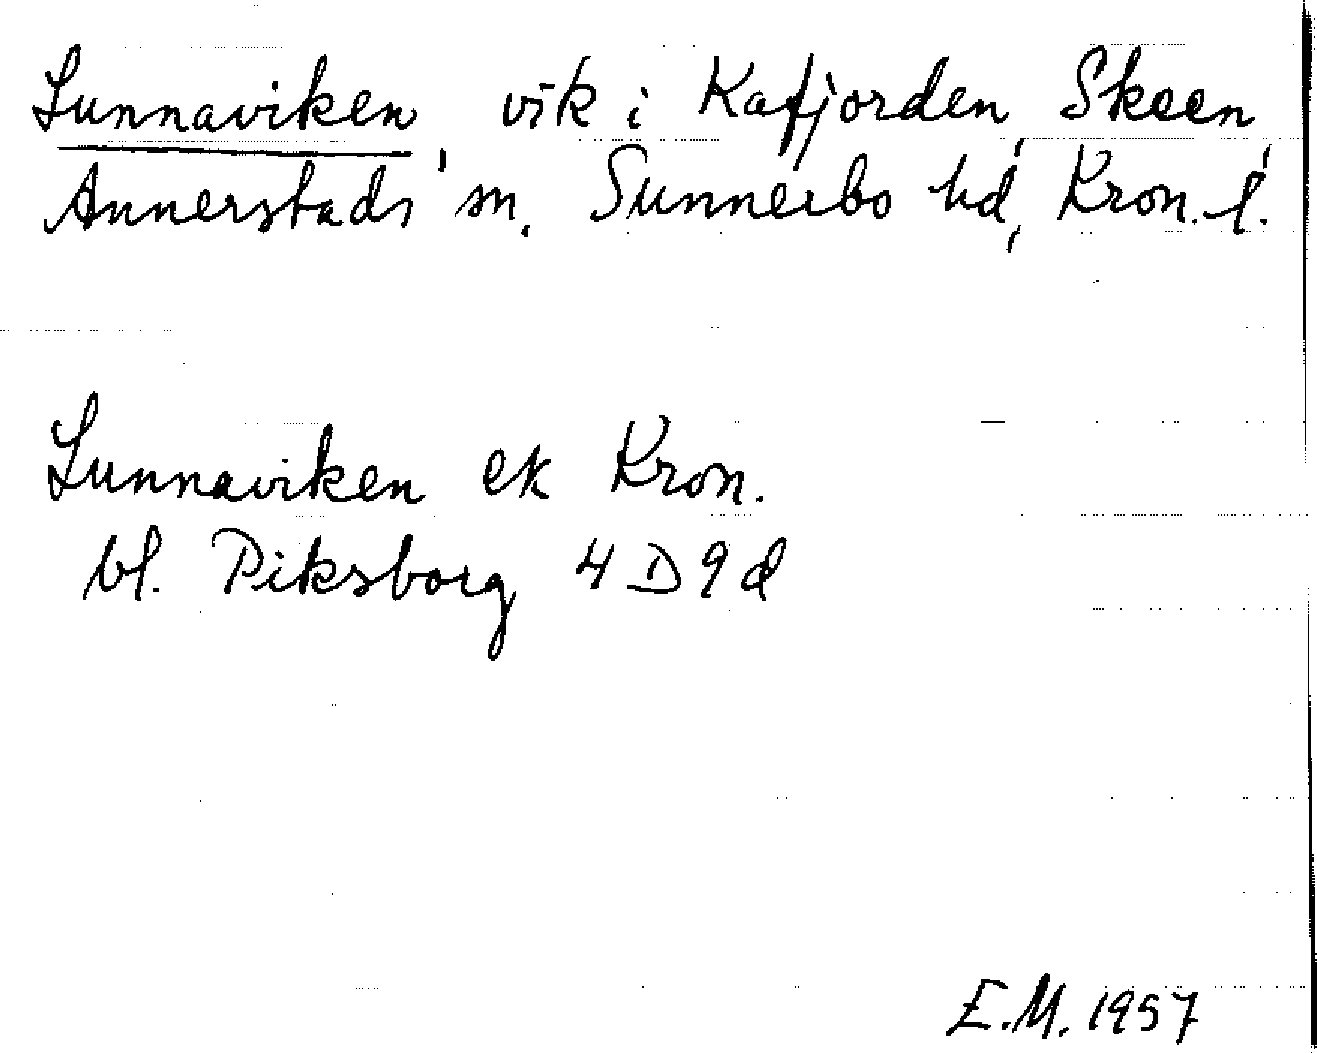 Lunnaviken, vik i Kafjorden, Skeen,
Annerstads sn, Sunnerbo hd, Kron. l.
Lunnaviken ek Kron.
bl. Piksborg 4 D 9 d
E.M. 1957